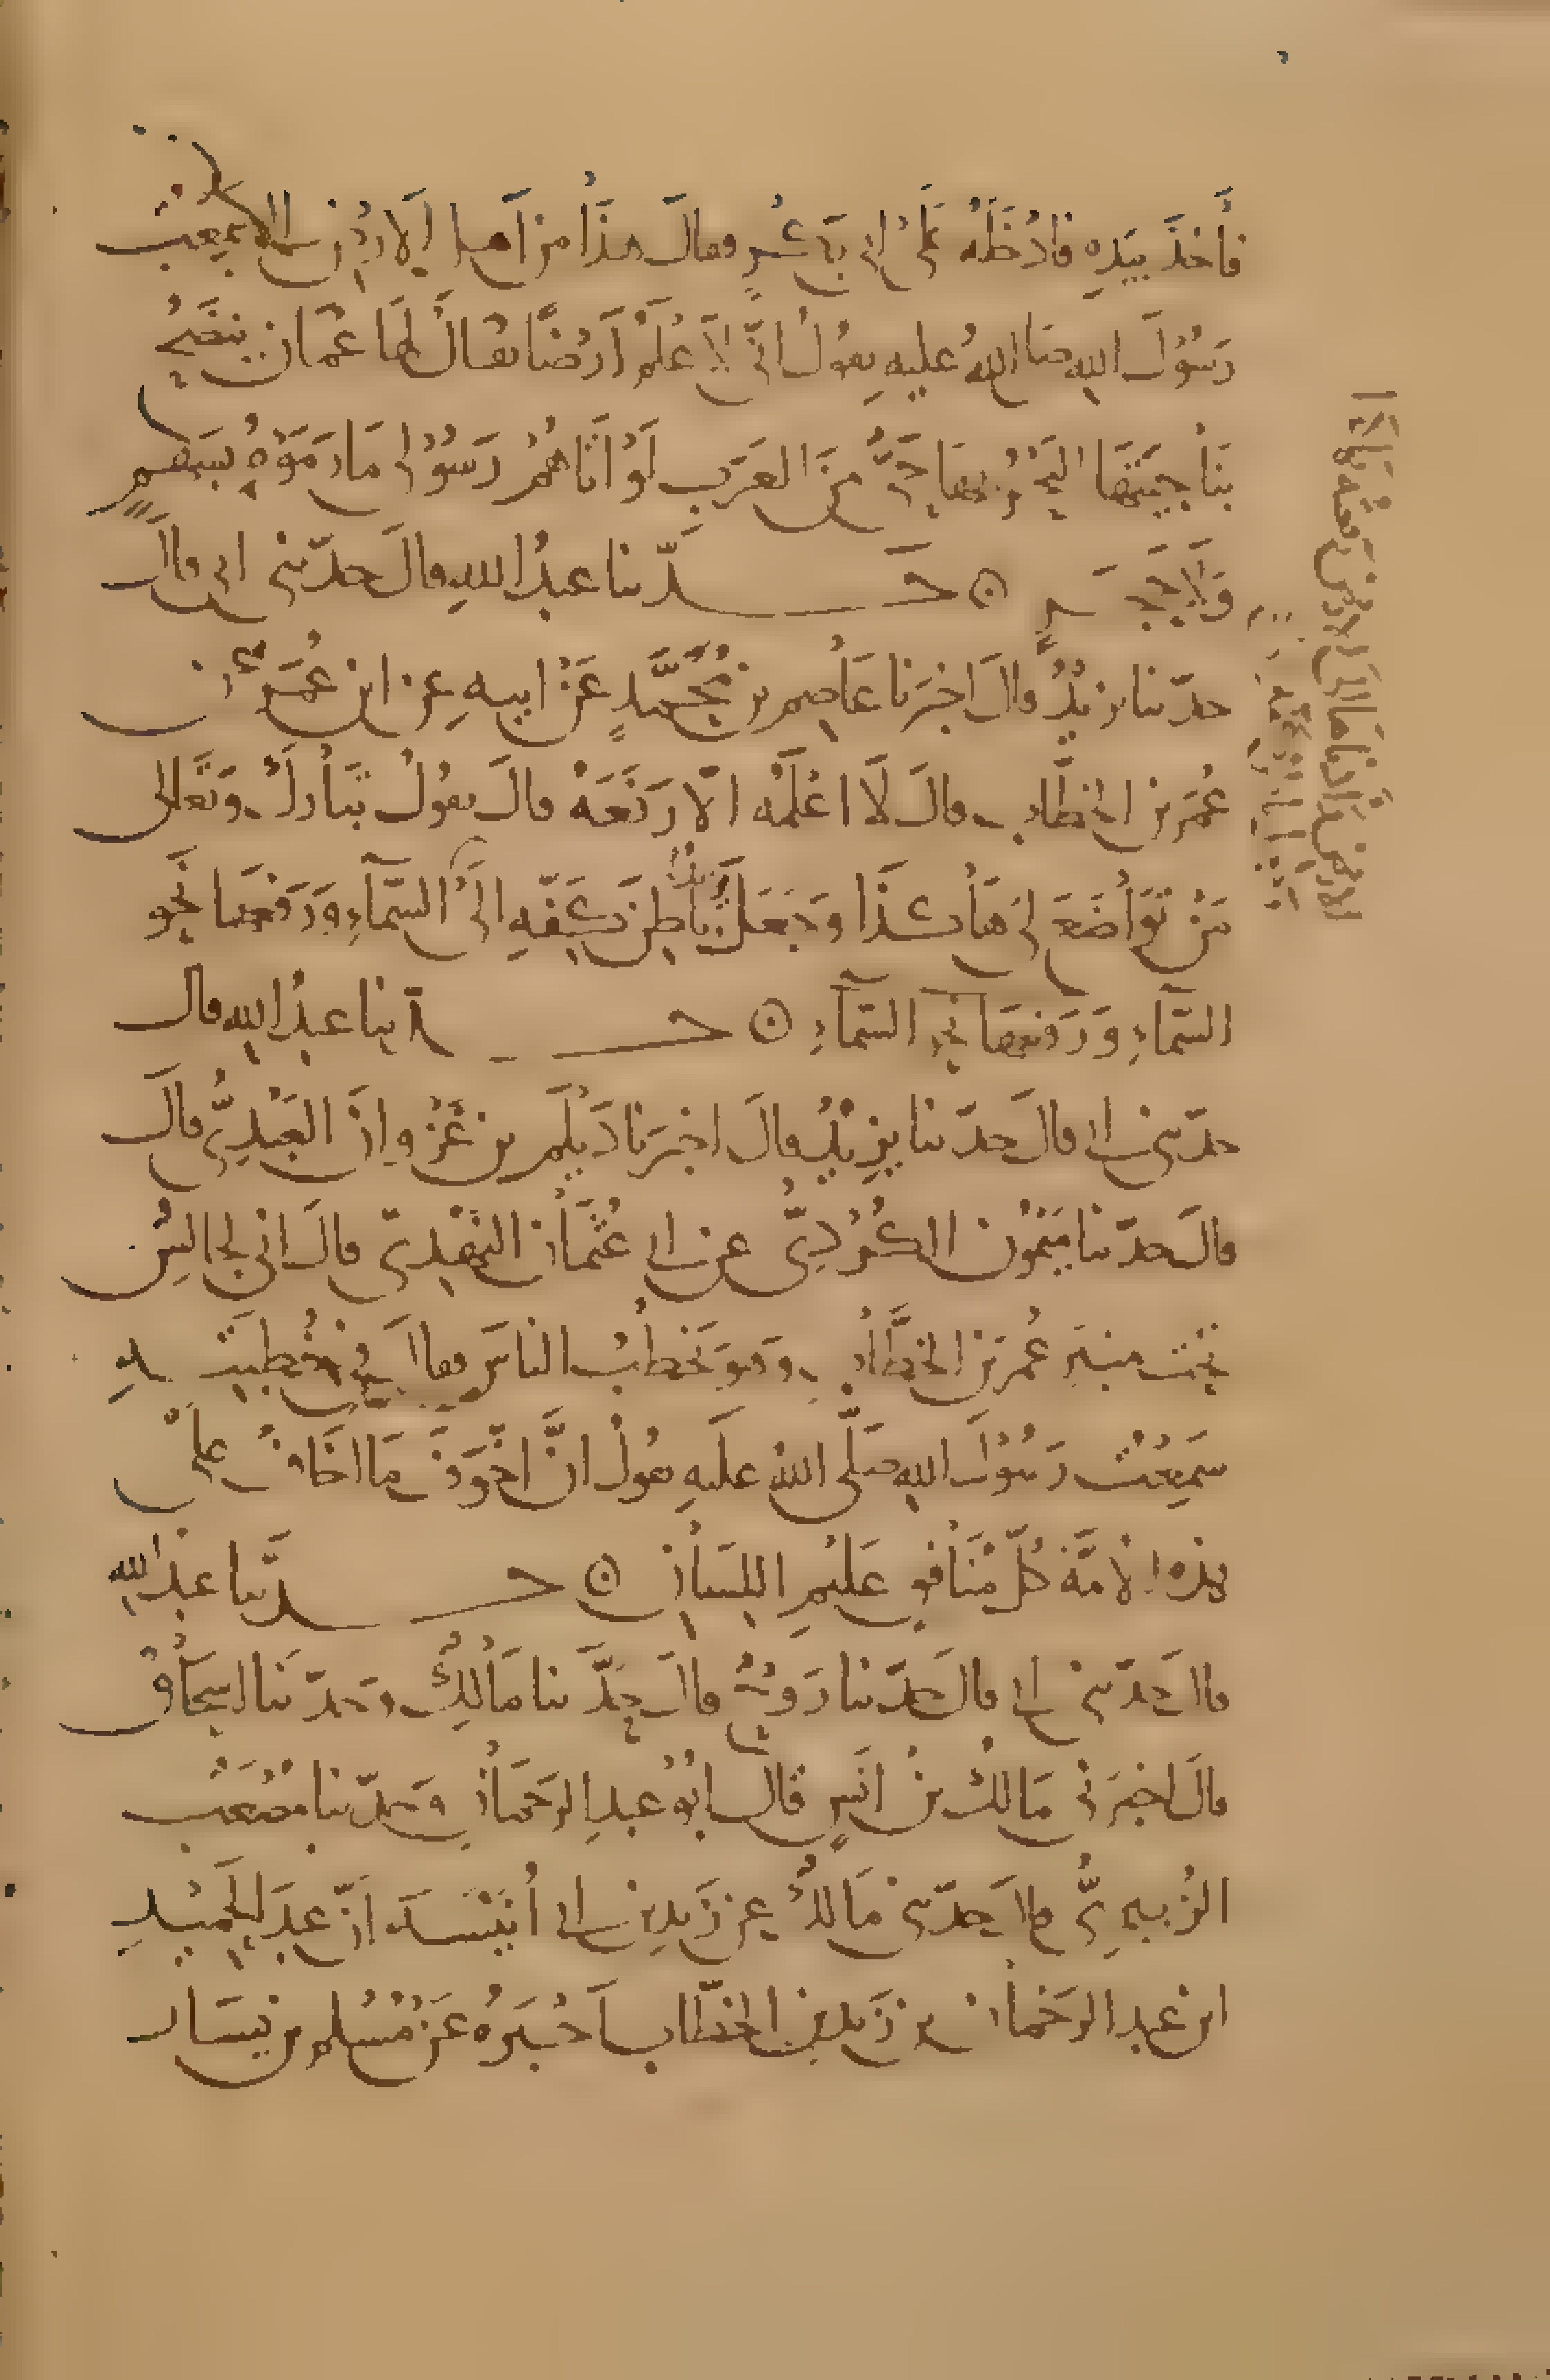 فأخذ بيده فادخله على ابى بكر فقال هذا من اهل الارض التى سمعت
رَسُوْلَ الله صلى اللهُ عليه يقول انّى لاَعْلَمُ اَرْضًا يقال لها عُمَان ينضح
بناحيتها البحر بها حَىٌّ مِنَ العَرَبِ لَوْ اَتَاهُمْ رَسُوْلى مَا رَمَوْهُ بِسَهْمٍ
وَلَا حَجَرٍ ۞ حَدّثنا عبدُ اللهِ قالَ حدّثنى ابى قال
حدّثنا يزيدُ قالَ اخبَرَنا عَاصِم بن مُحَمَّدٍ عَنْ ابيهِ عن ابن عُمَرَ عن
عُمَرَ بن الخطَّاب قالَ لَا اعْلَمُه الّا رَفَعَهُ قالَ يقولُ تَبَارَكَ وَتَعَالى
مَنْ تَوَاضَعَ لى هَاكَذَا وَجَعَلَ يزيدُ بَاطِنَ كَفِّهِ الىَ السّمَآءِ وَرَفَعَهَا نَحْو
السّمَآءِ وَرَفَعهَا نحو السّمَآءِ ۞ حَدّثنا عبدُ الله قال
حدّثنى ابى قالَ حدّثنا يزيْدُ قالَ اخبَرَنا دَيْلَم بن غَزْوان العَبْدِىّ قالَ
قالَ حدّثنا مَيْمُوْن الكُرْدِىّ عن ابى عُثْمَان النَّهْدِىّ قالَ انى لجالِسٌ
تحْتَ مِنبَرِ عُمَر بن الخَطَّابِ وَهوَ يَخطُبُ الناسَ فقالَ فى خُطبَتِهِ
سَمِعْتُ رَسُوْلَ اللهِ صَلَّى اللهُ عليهِ يقولُ انَّ اخْوَفَ مَا اخَافُ علَى
هذه الاُمَّةِ كُلّ مُنَافِقٍ عَلِيْمِ اللِّسَانِ ۞ حَدَّثنا عبدُ الله
قالَ حدّثنى ابى قالَ حدّثنا رَوْحٌ قالَ حدَّثنا مَالِكٌ وَحدّثنا اسحَاقُ
قالَ اخبَرَنى مَالكُ بنُ انَسٍ قالَ ابُوْ عبدِ الرَحمَانِ وَحدّثنا مُصْعَبٌ
الزُبيرِىُّ قالَ حدّثنى مَالكٌ عن زَيدِ بن ابى اُنَيْسَةَ اَنّ عبدَ الحَمِيْدِ
ابن عبدِ الرَحمَان بن زَيدِ بن الخطّاب اَخْبَرَهُ عَنْ مُسْلم بن يسَار